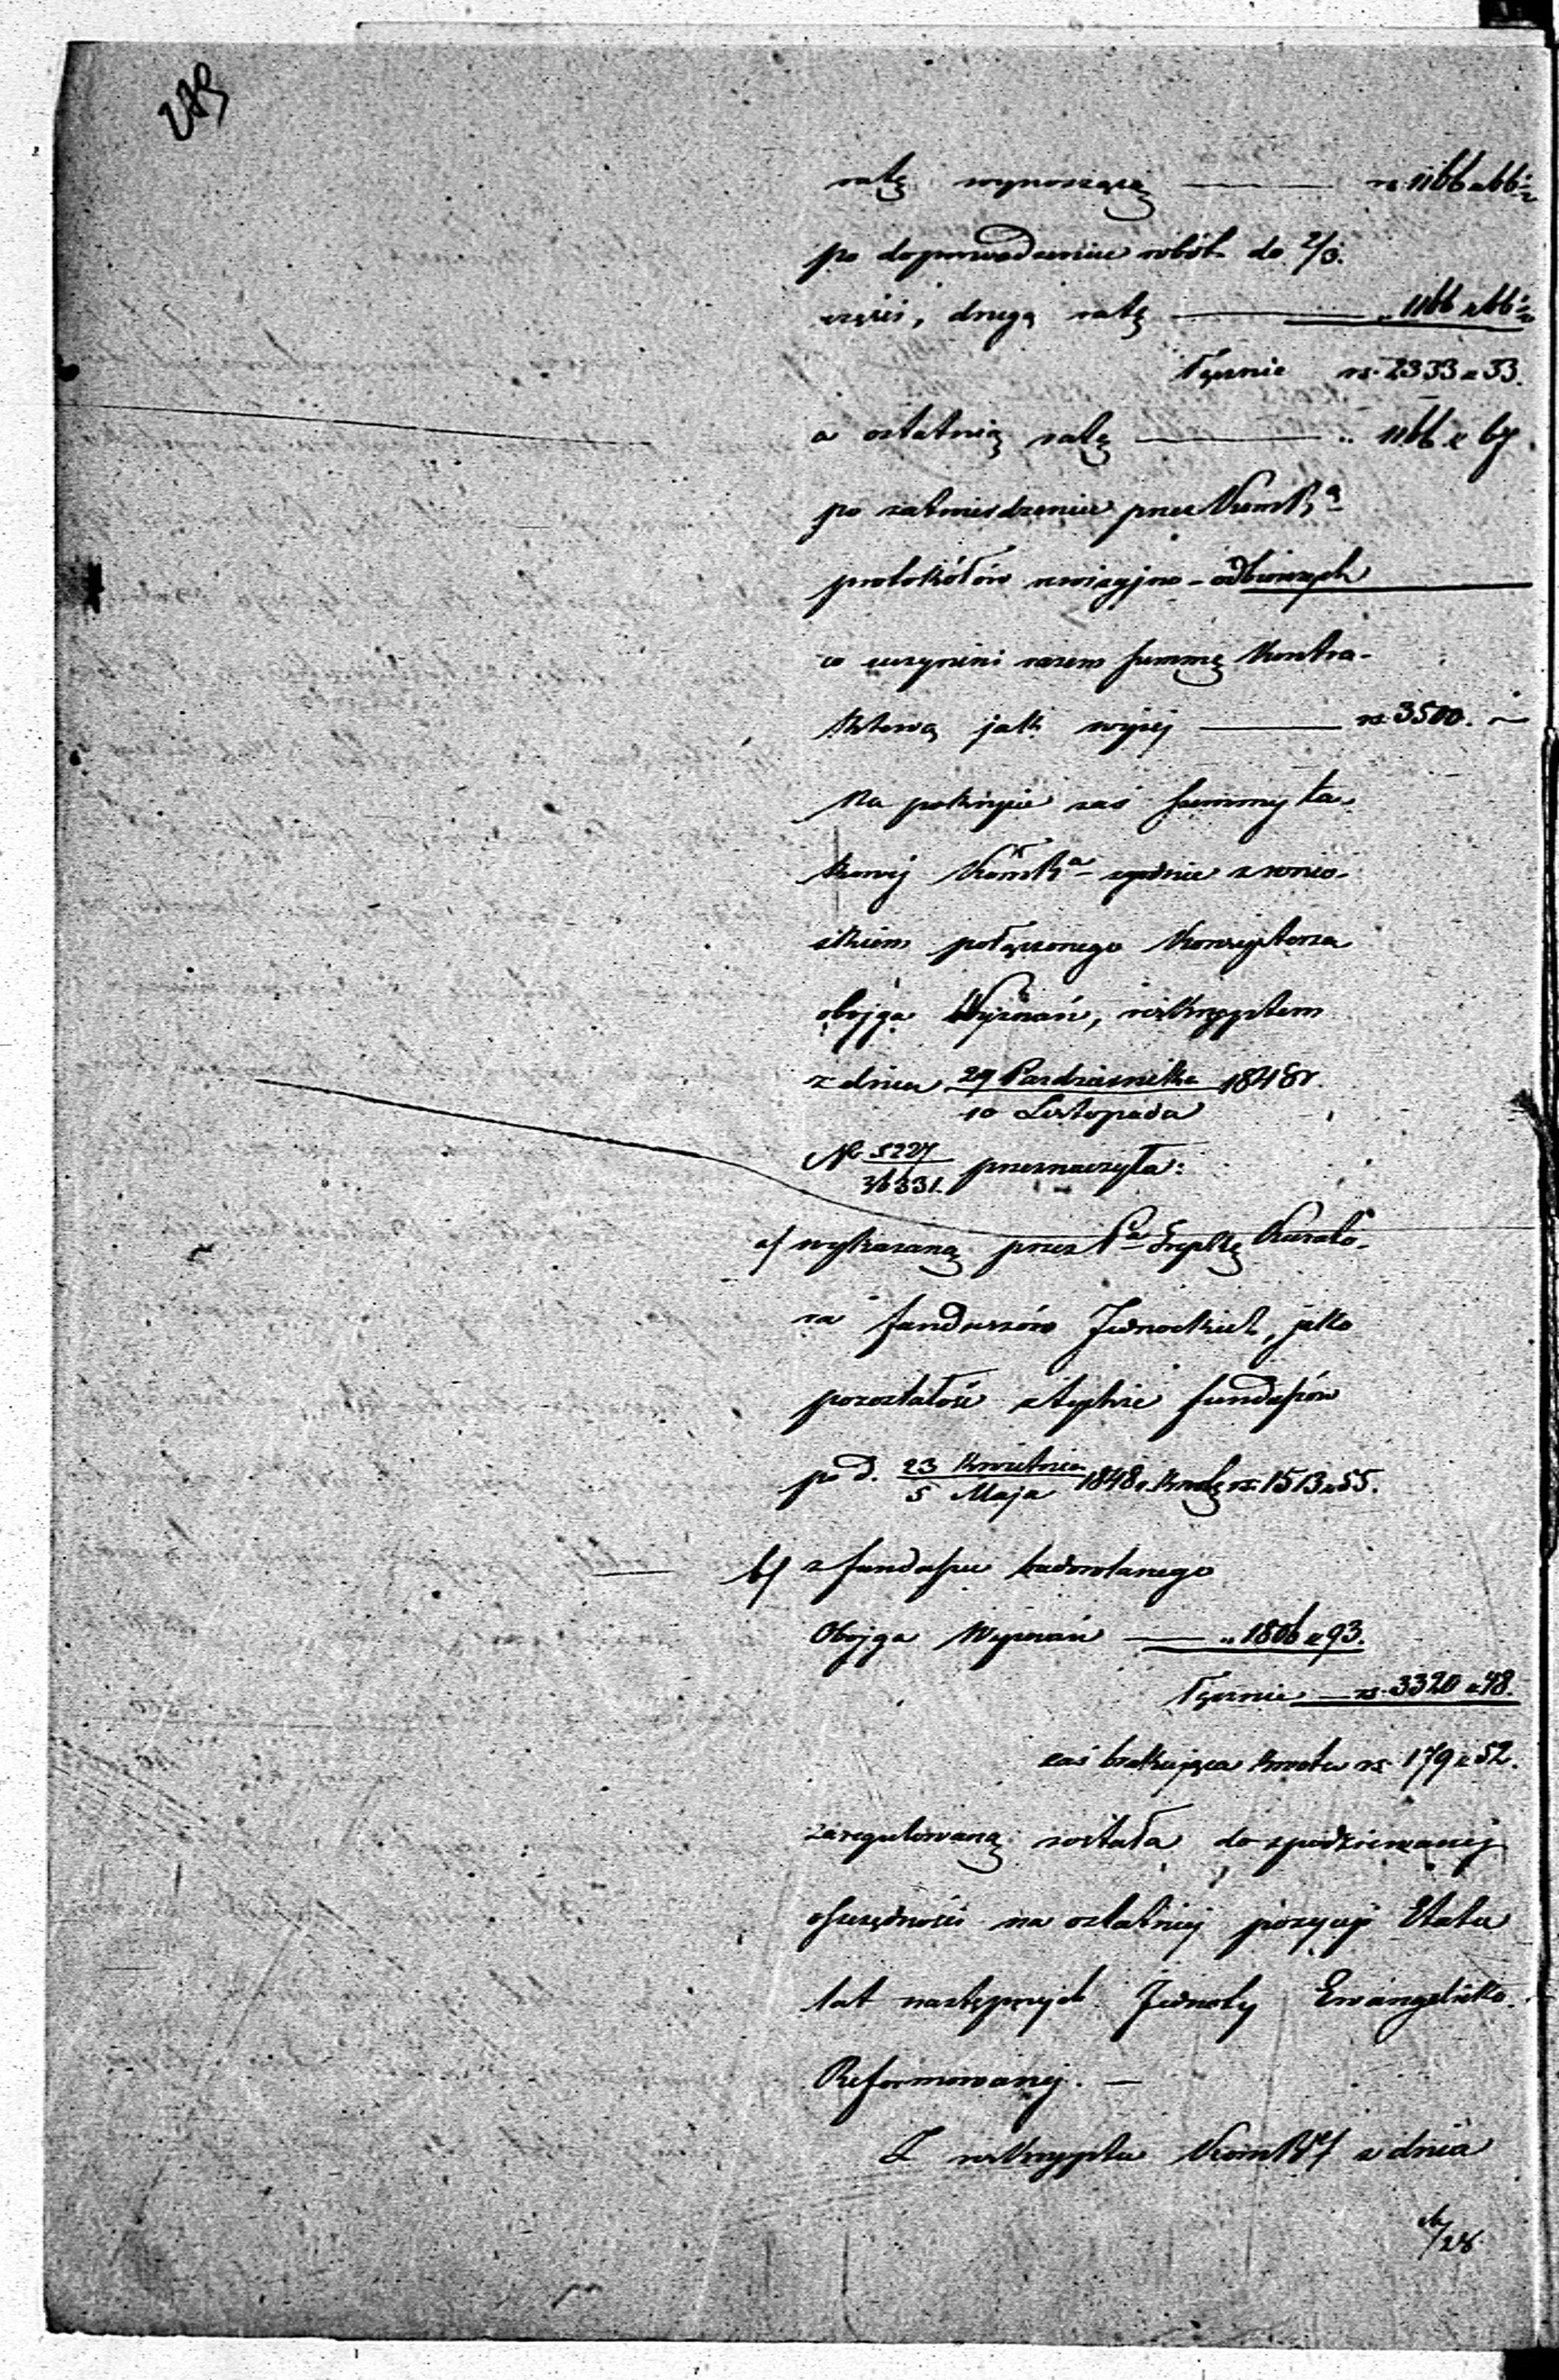 279
ratę wynoszącą — rs. 1166 k 66½
po doprowadzeniu robót do 2/3.
części, drugą ratę — „ 1166 k 66½
Łącznie rs. 2333 k 33.
a ostatnią ratę — „ 1166 k 67.
po zatwierdzeniu przez KomRą
protokółów rewizyjno-odbiorczych
co uczyni razem summę Kontra-
ktową jak wyżej — rs. 3500. —
Na pokrycie zaś summy ta-
kowej KomRa zgodnie z wnio-
skiem połączonego Konsystorza
obojga Wyznań, reskryptem
z dnia 29 Pazdziernika 1848 r.
10 Listopada
No 5227
36331. przeznaczyła:
a/ wykazaną przez Pa Kurato-
ra funduszów Jednockich, jako
pozostałość z tychże funduszów
po d. 23 Kwietnia 1848 r. kwotę rs. 1513 k 55.
5 Maja
b/ z funduszu budowlanego
Obojga Wyznań — „ 1806 k 93.
Łącznie — rs. 3320 k 48.
zaś brakująca kwota rs. 179 k 52.
zaregulowaną została do spodziewanej
oszczędności na ostatniej pozycyi Etatu
lat następnych Jednoty Ewangelicko-
Reformowanej. —
Z reskryptu KomRej z dnia